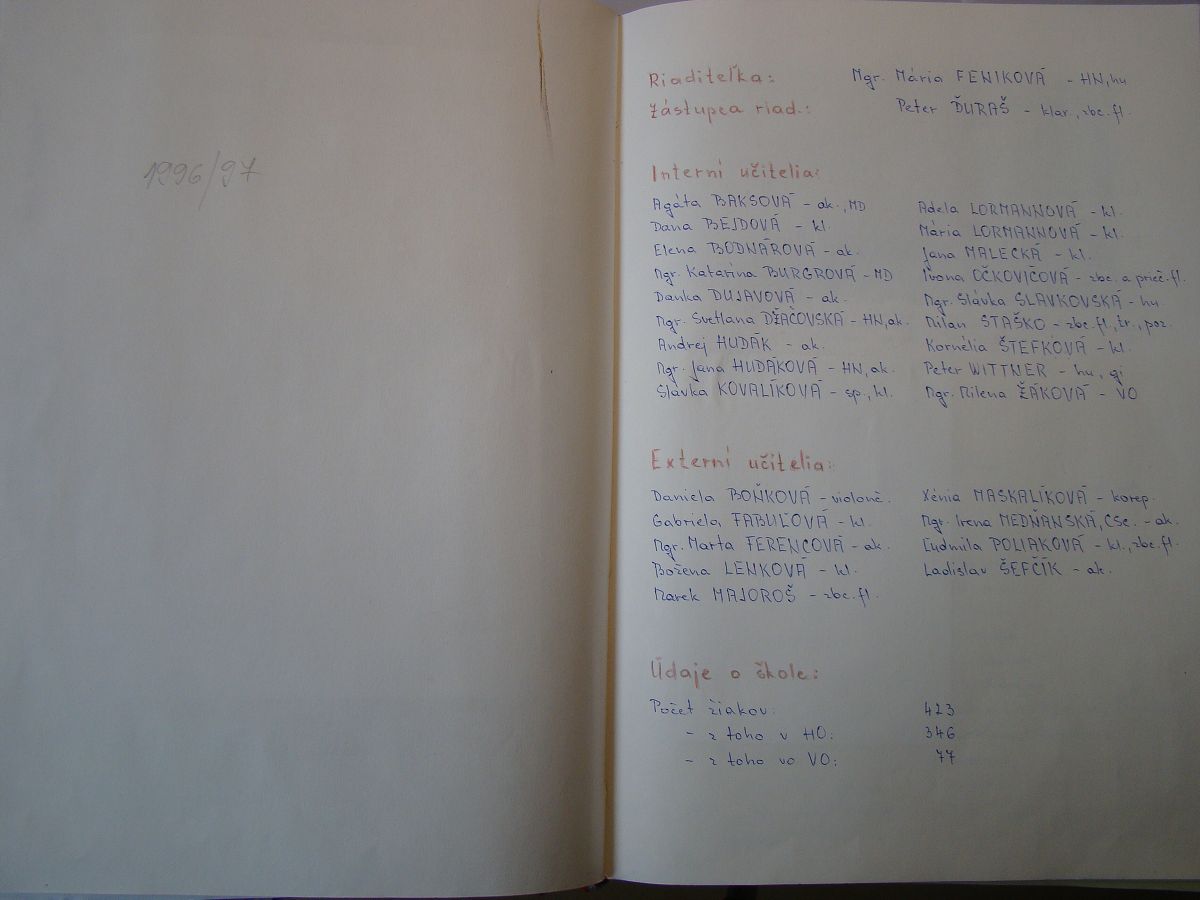 1996/97
Riaditeľka: Mgr. Mária FENIKOVÁ - HN, hu
Zástupca riad.: Peter ĎURAŠ - klar., zbc. fl.
Interní učitelia:
Agáta BAKSOVÁ - ak., MD Adela LORMANNOVÁ - kl.
Dana BEJDOVÁ - kl. Mária LORMANNOVÁ - kl.
Elena BODNÁROVÁ - ak. Jana MALECKÁ - kl.
Mgr. Katarína BURGROVÁ - MD Ivona OČKOVIČOVÁ - zbc. a prieč. fl.
Danka DUJAVOVÁ - ak. Mgr. Slávka SLAVKOVSKÁ - hu
Mgr. Svetlana DŽAČOVSKÁ - HN, ak. Milan STAŠKO - zbc. fl., tr., poz.
Andrej HUDÁK - ak. Kornélia ŠTEFKOVÁ - kl.
Mgr. Jana HUDÁKOVÁ - HN, ak. Peter WITTNER - hu, gi
Slávka KOVALÍKOVÁ - sp., kl. Mgr. Milena ŽÁKOVÁ - VO
Externí učitelia:
Daniela BOŇKOVÁ - violonč. Xénia MASKALÍKOVÁ - korep.
Gabriela FABUĽOVÁ - kl. Mgr. Irena MEDŇANSKÁ, CSc. - ak.
Mgr. Marta FERENCOVÁ - ak. Ľudmila POLIAKOVÁ - kl., zbc. fl.
Božena LENKOVÁ - kl. Ladislav ŠEFČÍK - ak.
Marek MAJOROŠ - zbc. fl.
Údaje o škole:
Počet žiakov: 423
- z toho v HO: 346
- z toho vo VO: 77